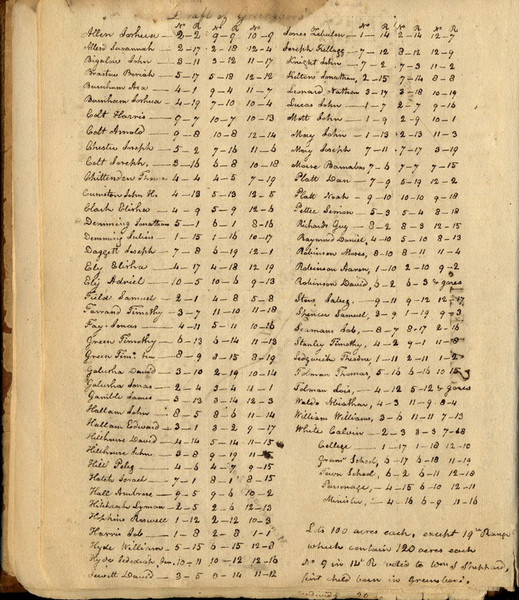 Draft of Greensboro
No R No R No R
Allen Joshua 2-2 9-9 10-9
Allen Susannah 2-17 2-18 12-4
Bigalow John 8-11 3-12 11-17
Brastow Beriah 5-17 5-18 12-12
Burnham Asa 4-1 9-4 11-7
Burnham Joshua 4-19 7-10 10-4
Colt Harris 9-7 10-7 10-13
Colt Arnold 9-8 10-8 12-14
Chester Joseph 5-2 7-16 11-6
Colt Joseph 3-16 6-8 10-18
Chittenden 4-4 4-5 7-19
John H. 4-13 5-13 12-5
Clark Elisha 4-9 5-9 12-6
Demming Jonathan 5-1 6-1 8-16
Demming Julius 1-15 1-16 10-17
Daggett Joseph 7-8 6-19 12-1
Ely Elisha 4-17 4-18 12-19
Ely Adriel 10-5 10-6 9-13
Field Samuel 2-1 4-8 5-8
Farrand Timothy 3-7 11-10 11-18
Fay Jonas 4-11 5-11 10-16
Green Timothy 6-13 6-14 11-13
Green Timy. Jun 8-9 3-15 8-19
Galusha David 3-10 2-19 10-14
Galusha Jonas 2-4 3-4 11-1
Gamble James 3-13 3-14 12-3
Hallam John 8-5 8-6 11-14
Hallam Edward 3-1 3-2 9-17
Hillhouse David 4-14 5-14 11-15
Hillhouse John 3-8 9-19 11-15
Hill Peleg 4-6 4-7 9-15
Hatch Israel 7-1 8-1 8-15
Hall Ambrose 9-5 9-6 10-2
Hitchcock Lyman 2-5 2-6 12-13
Hopkins Roswell 1-12 2-12 10-3
Harris Job 1-8 2-8 1-1
Hyde William 5-15 6-15 12-8
Hyde Jedediah Jun. 10-11 10-12 12-16
Jewett David 3-5 9-14 11-12
No R No R No R
Jones Zebulon 1-14 2-14 12-7
Joseph Kellogg 7-12 8-12 12-9
Knight John 7-2 7-3 11-2
Kilton Jonathan 2-15 7-14 8-8
Leonard Nathan 3-17 3-18 10-19
Lucas John 1-7 2-7 9-16
Mott John 1-9 2-9 10-1
May John 1-13 2-13 11-3
May Joseph 7-11 7-17 3-19
Morse Barnabas 7-6 7-7 7-15
Platt Dan 7-9 5-19 12-2
Platt Noah 9-10 10-10 9-18
Pettee Simon 5-3 5-4 8-18
Richards Guy 8-2 8-3 12-15
Raymond Daniel 4-10 5-10 8-13
Robinson Moses 8-10 8-11 11-4
Robinson Aaron 1-10 2-10 9-2
Robinson David 6-2 6-3 & gores
Stone 9-11 9-12 12-17
Spencer Samuel 3-9 1-19 9-3
Seamans Job 8-7 8-17 2-16
Stanley Timothy 4-2 9-1 11-8
Sedgwick Theodre 1-11 2-11 1-2
Tolman Thomas 5-16 6-16 10-15
Tolman Lois 4-12 5-12 & gores
Waldo Abiathar 4-3 11-9 3-4
William Williams 3-6 11-11 7-13
White Calvin 2-3 3-3 7-18
College 1-17 1-18 12-10
Gramr School 6-17 6-18 11-19
Town School 6-2 6-11 12-18
Parsonage 4-15 6-10 12-11
Minister 4-16 6-9 11-16
Lots 100 acres each, except 19th Range
which contain 120 acres each
No 9 in 14 R voted to Wm Shephard,
first child born in Greensboro.